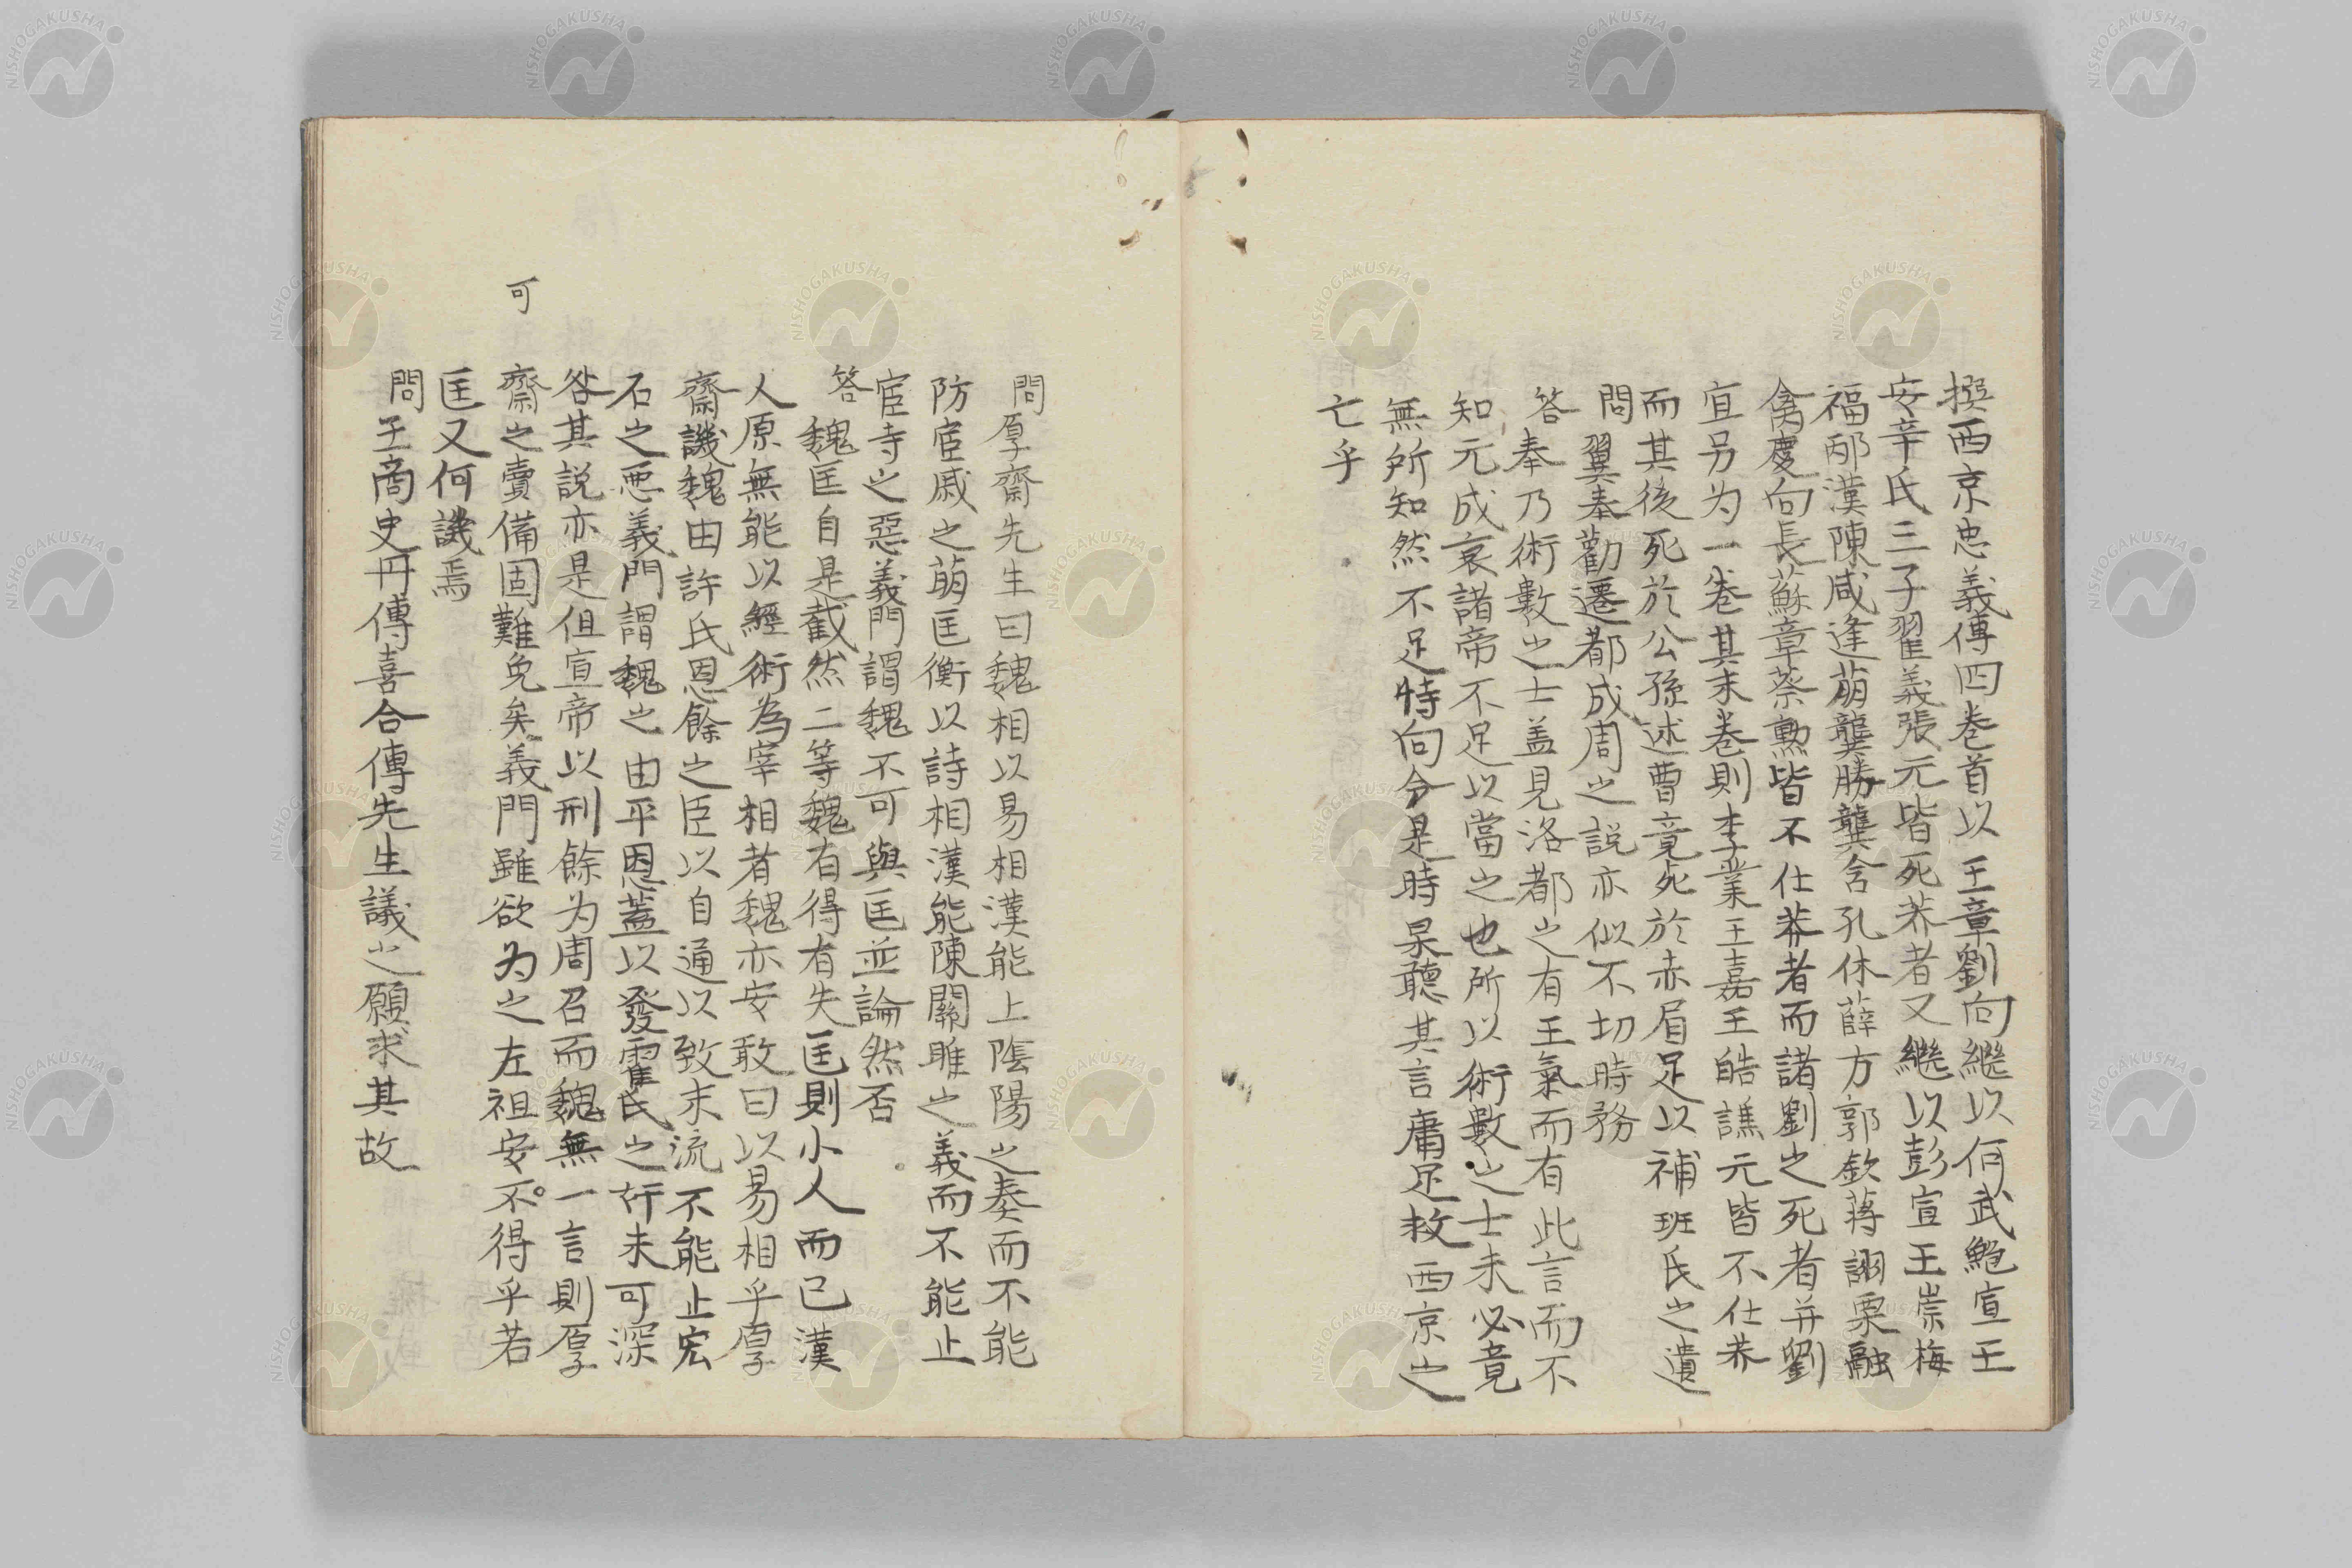 撰西京忠義傳四卷首以王章劉向繼以何武鮑宣王
安辛氏三子翟義張元皆死莽者又繼以彭宣王崇梅
福邴漢陳咸逢萌龔勝龔舍孔休薛方郭欽蔣詡栗融
禽慶向長蘇章蔡勲皆不仕莽者而諸劉之死者并劉
宜另为一卷其末卷則李業王嘉王皓譙元皆不仕莽
而其後死於公孫述曹竟死於赤眉足以補班氏之遺
問翼奉勸遷都成周之説亦似不切時務
答奉乃術數之士盖見洛都之有王氣而有此言而不
知元成哀諸帝不足以當之也所以術數之士未必竟
無所知然不足恃向令是時杲聽其言庸足救西京之
亡乎
問厚齋先生曰魏相以易相漢能上陰陽之奏而不能
防宦戚之萌匡衡以詩相漢能陳關雎之義而不能止
宦寺之惡義門謂魏不可與匡並論然否
答魏匡自是截然二等魏有得有失匡則小人而已漢
人原無能以經術為宰相者魏亦安敢曰以易相乎厚
齋譏魏由許氏恩餘之臣以自通以致末流不能止宏
石之恶義門謂魏之由平恩蓋以發霍氏之奸未可深
咎其説亦是但宣帝以刑餘为周召而魏無一言則厚
齋之賣備固難免矣義門雖欲为之左袒安不得乎若
可
匡又何譏焉
問王商史丹傳喜合傳先生議之願求其故
NISHOGAKUSHA